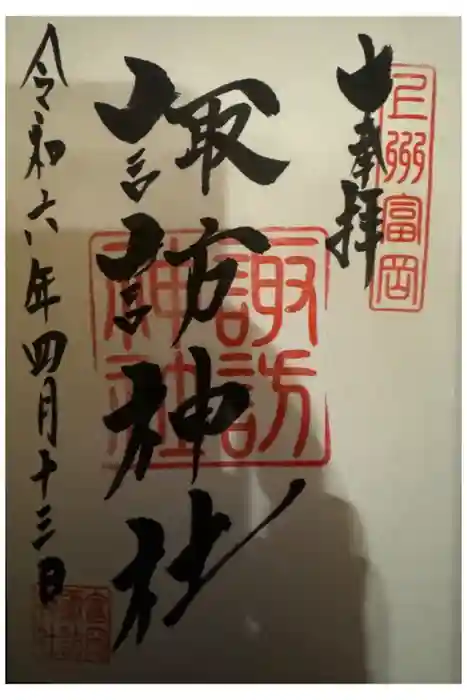 奉拝
上州富岡
諏訪神社
諏訪
神社
令和六年四月十三日